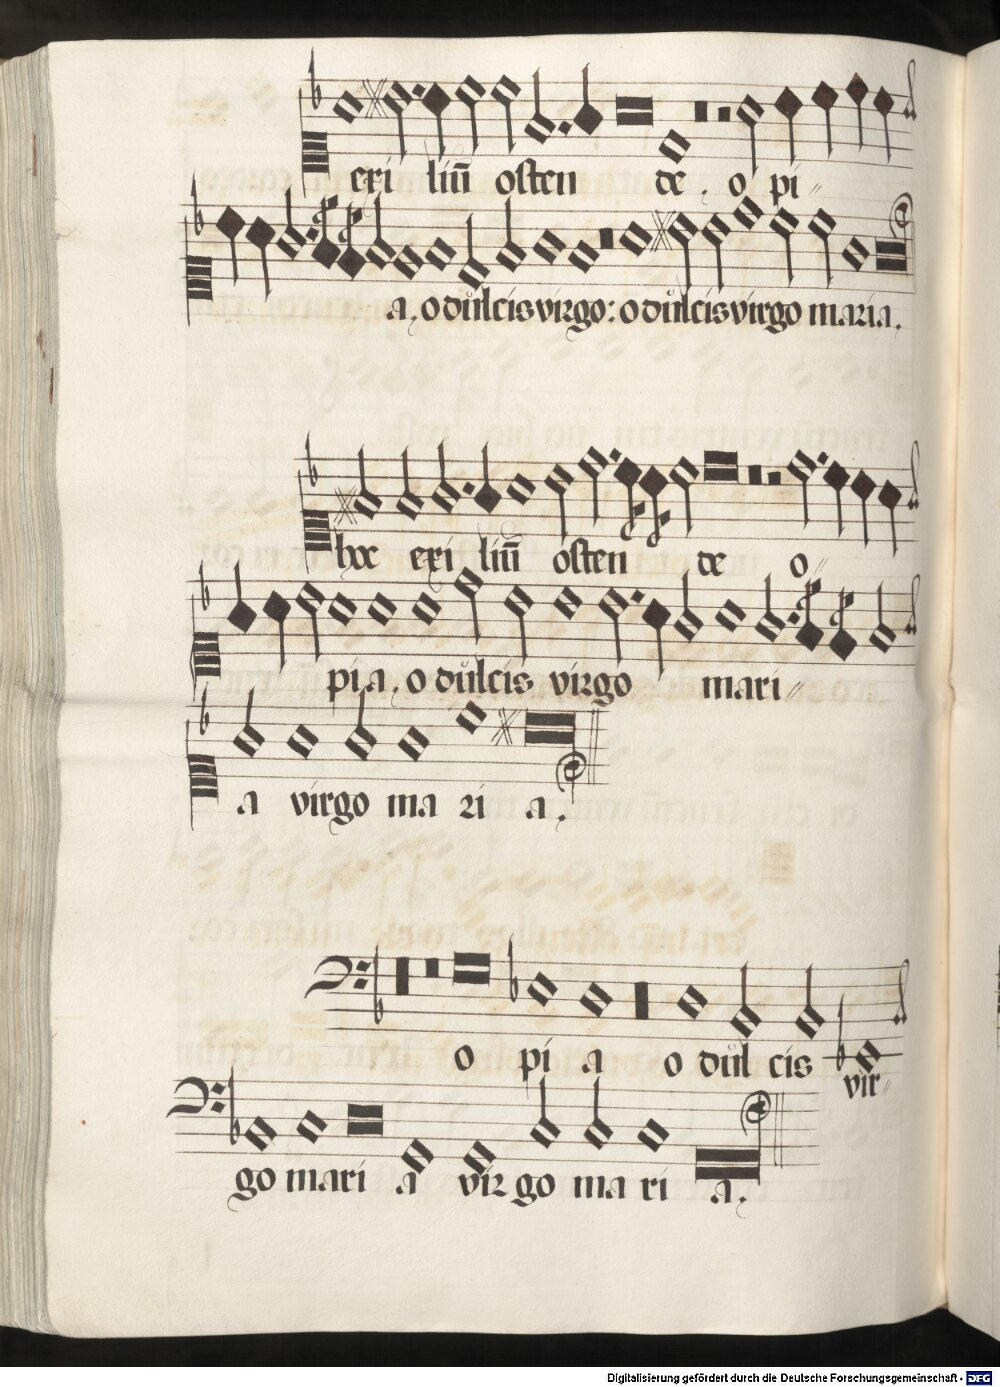 exi liū osten de . o pi
a . o dulcis virgo : o dulcis virgo maria .
hoc exi liū osten de o
pi a . o dulcis virgo mari
a virgo ma ri a .
o pi a o dul cis vir
go mari a vir go ma ri a .
Digitalisierung gefördert durch die Deutsche Forschungsgemeinschaft - DFG